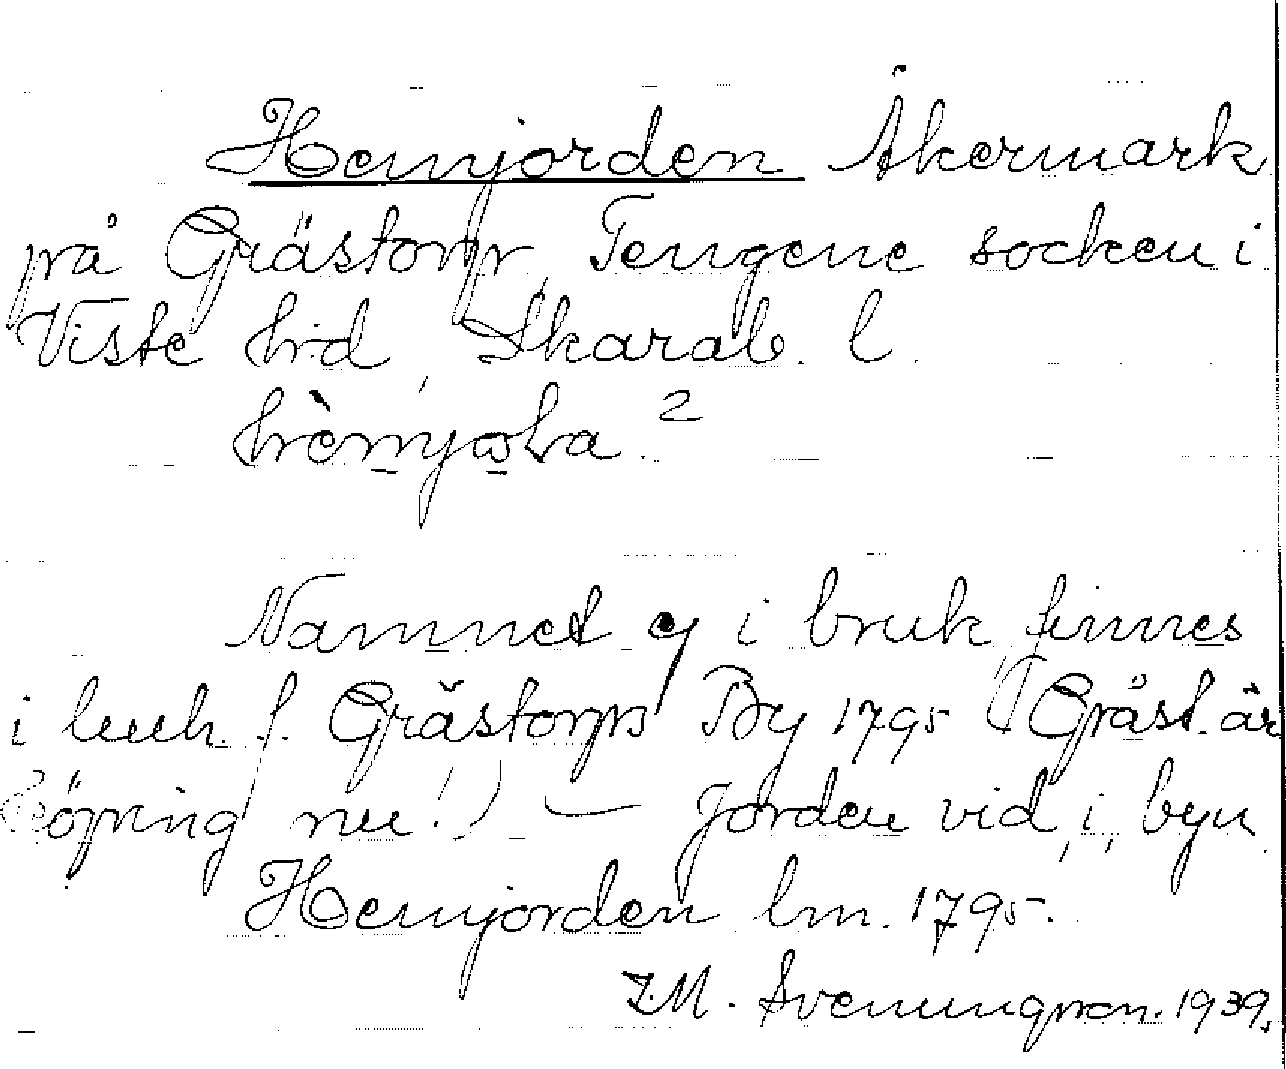 Hemjorden Åkermark
på Grästorp, Tengene socken i
Viste hd, Skarab. l.
Namnet ej i bruk, finnes
i lmh. f. Grästorps By 1795 (Gräst. är
köping nu!) — Jorden vid, i, byn
Hemjorden lm. 1795.
I.M. Svenungsson. 1939.